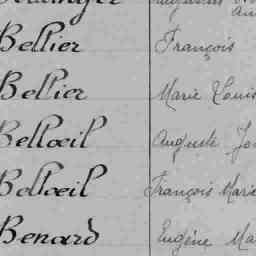 Bellier François
Bellier Marie Louis
Bellœil Auguste
Bellœil François Marie
Benard Eugène Ma